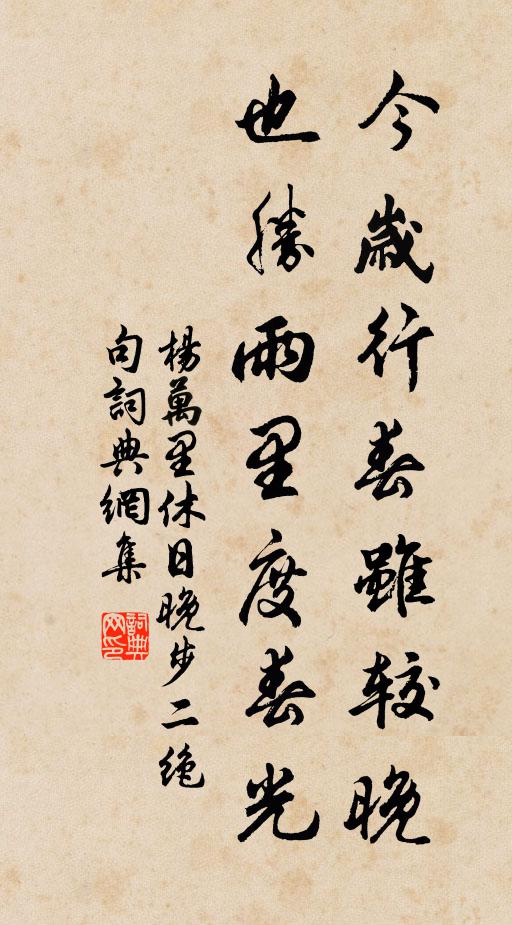 今歲行春雖較晚
也勝雨里度春光
楊萬里休日晚步二絶
句詞典網集
詞典网印